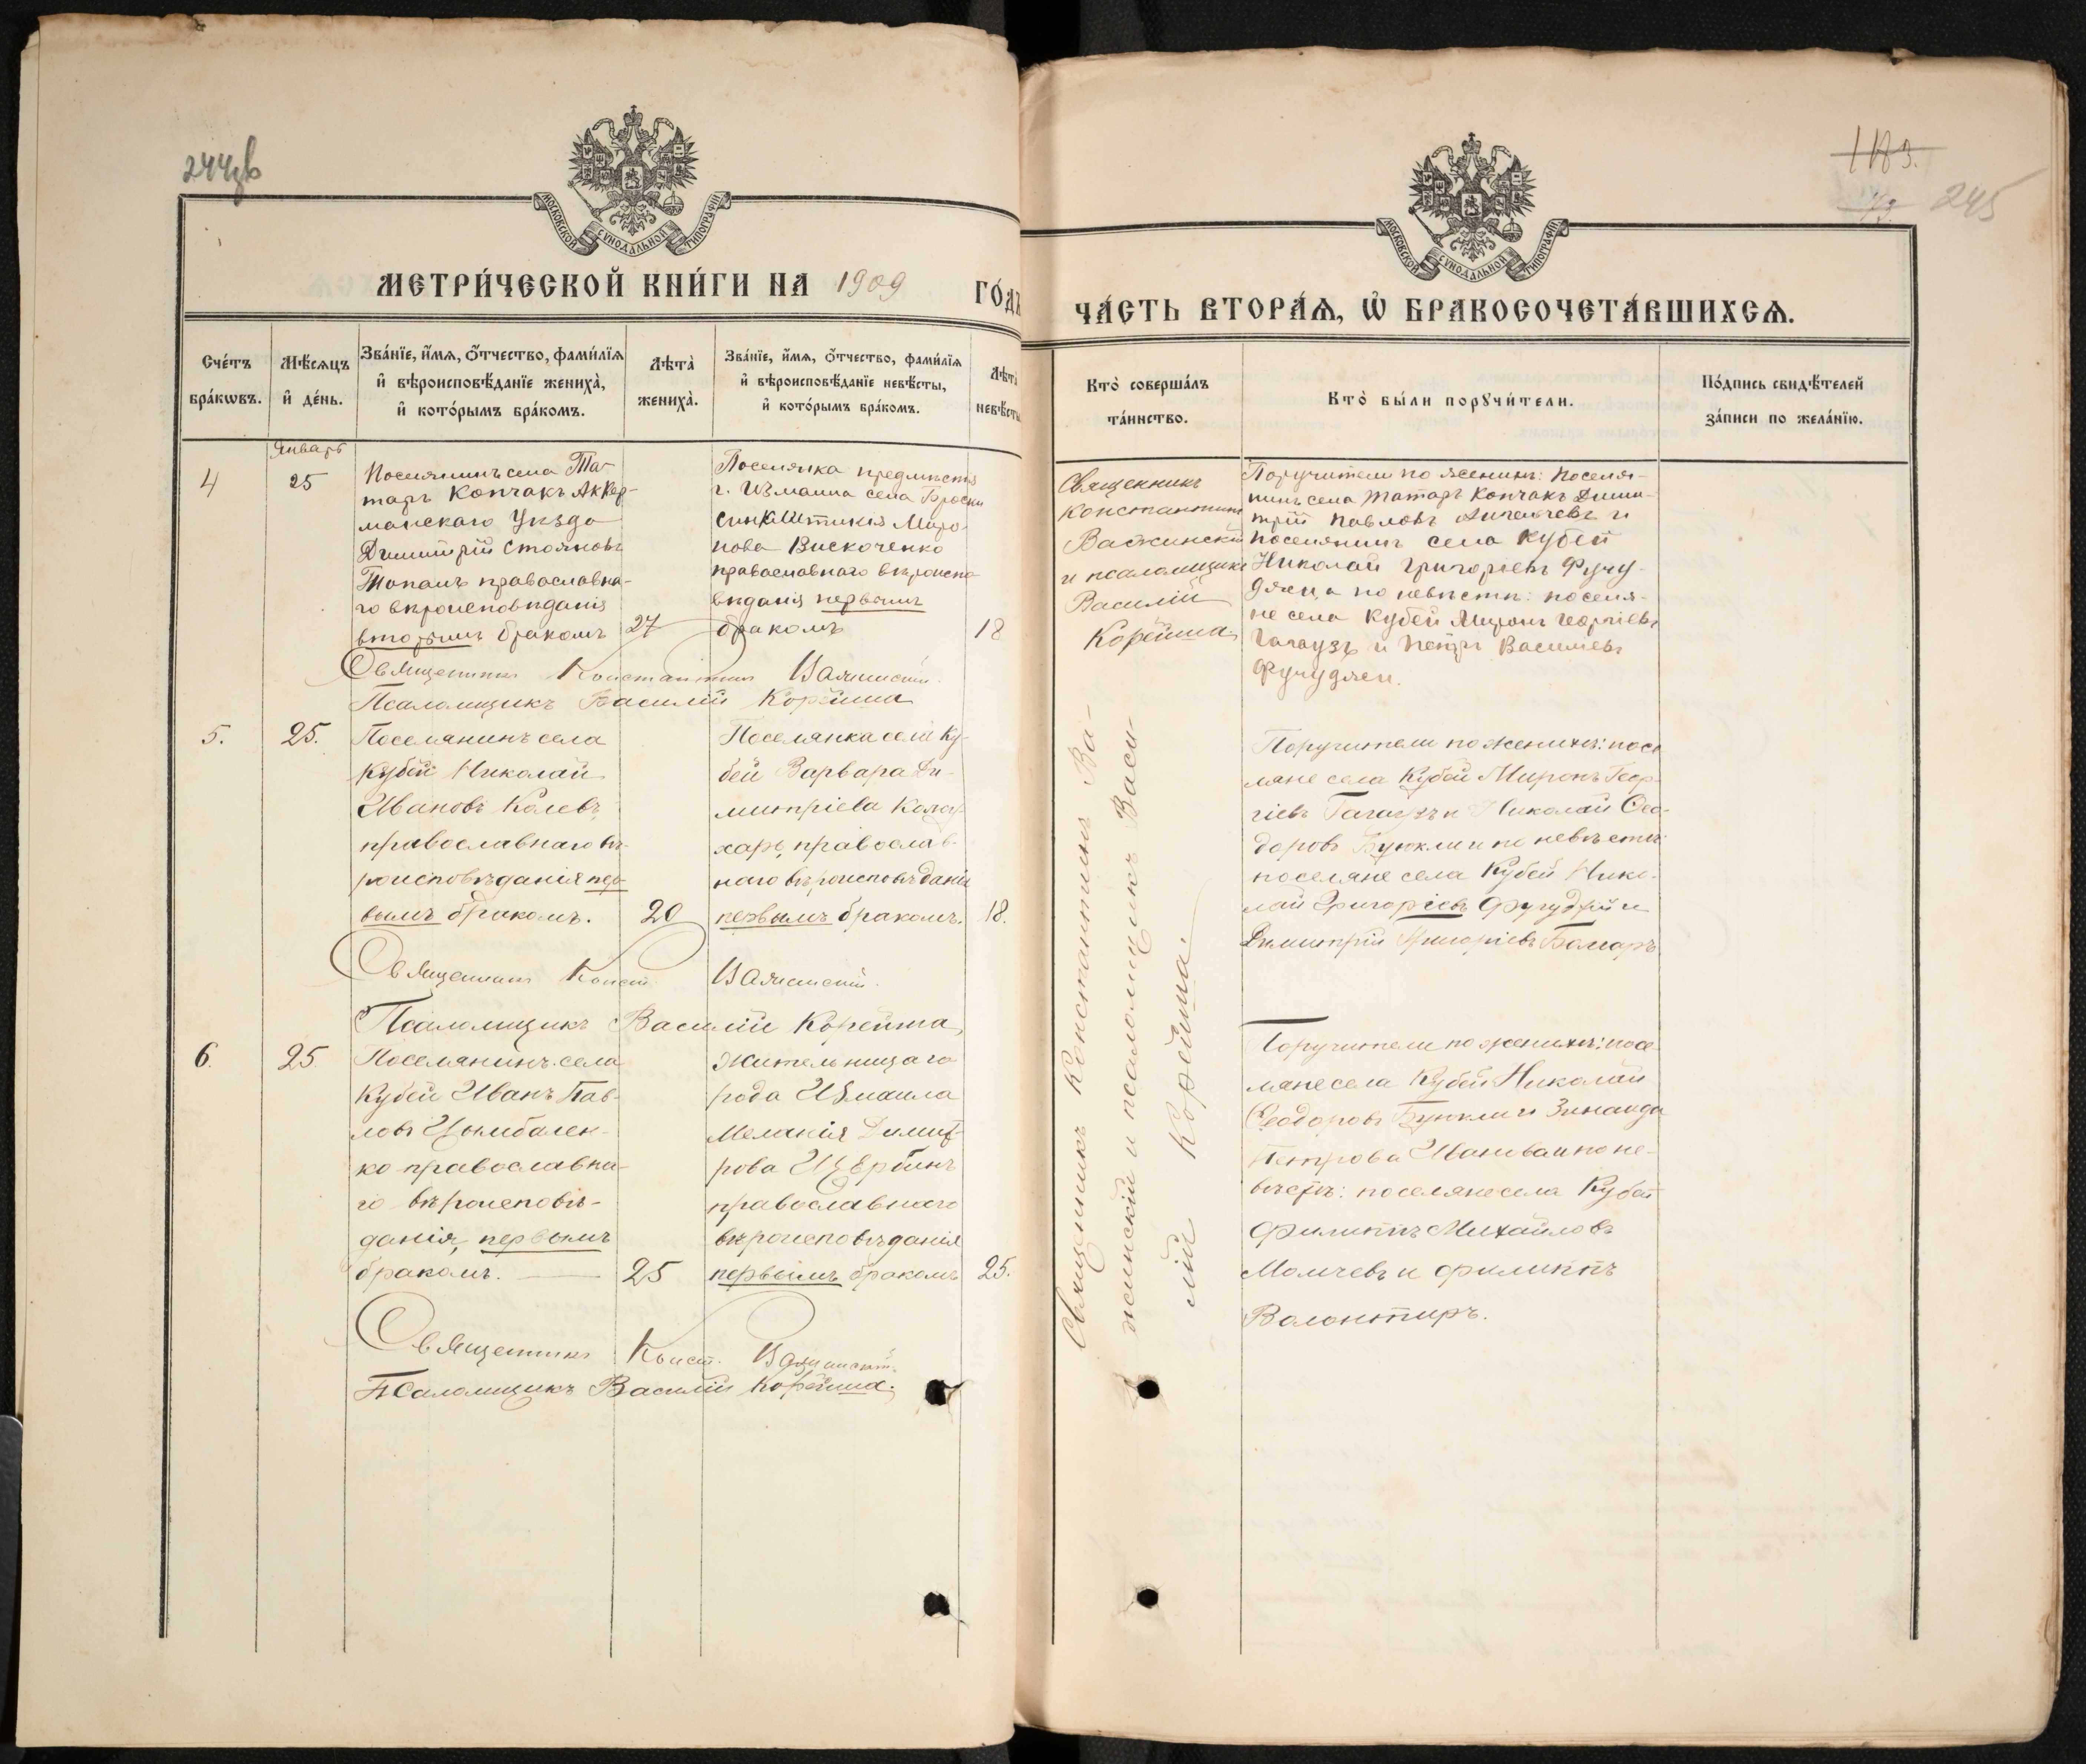 244 об
МОСКОВСКОЙ СѴНОДАЛЬНОЙ ТИПОГРАФІИ
МЕТРИ́ЧЕСКОЙ КНИ́ГИ НА 1909 ГО́ДЪ
Сче́тъ бра́кѡвъ.
Мѣ́сяцъ и҆ де́нь.
Зва́нїе, и҆́мѧ, ѻ҆́тчество, фами́лїѧ
и҆ вѣроисповѣ́данїе жениха̀,
и҆ кото́рымъ бра́комъ.
Лѣта̀ жениха̀.
Зва́нїе, и҆́мѧ, ѻ҆́тчество, фами́лїѧ
и҆ вѣроисповѣ́данїе невѣ́сты,
и҆ кото́рымъ бра́комъ.
Лѣта̀ невѣ́сты
Январь
4
25
Поселянинъ села Та-
таръ Копчакъ Аккер-
манскаго Уѣзда
Димитрій Стояновъ
Топалъ православна-
го вѣроисповѣданія
вторымъ бракомъ
27
Поселянка предмѣстья
г. Измаила села Броски
Синклитикія Миро-
нова Вискоченко
православнаго вѣроиспо-
вѣданія первымъ
бракомъ
18
Священникъ Константинъ Важинскій
Псаломщикъ Василій Корейша
5.
25.
Поселянинъ села
Кубей Николай
Ивановъ Колевъ,
православнаго вѣ-
роисповѣданія пер-
вымъ бракомъ.
20
Поселянка села Ку-
бей Варвара Ди-
митріева
православ-
наго вѣроисповѣданія
первымъ бракомъ.
18.
Священникъ Конст. Важинскій
Псаломщикъ Василій Корейша
6.
25
Поселянинъ села
Кубей Иванъ Пав-
ловъ Цымбален-
ко православна-
го вѣроисповѣ-
данія, первымъ
бракомъ.
25
Жительница го
рода Измаила
Меланія Димит-
рова Щербинъ
православнаго
вѣроисповѣданія
первымъ бракомъ
25.
Священникъ Конст. Важинскій
Псаломщикъ Василій Корейша.
183.
245
МОСКОВСКОЙ СѴНОДАЛЬНОЙ ТИПОГРАФІИ
ЧА́СТЬ ВТОРА́Ѧ, Ѡ҆ БРАКОСОЧЕТА́ВШИХСѦ.
Кто̀ соверша́лъ
та́инство.
Кто̀ бы́ли порꙋчи́тели.
По́дпись свидѣ́телей
за́писи по жела́нїю.
Священникъ
Константинъ
Важинскій
и псаломщикъ
Василій
Корейша
Поручители по женихѣ: поселя-
нинъ села Татаръ Копчакъ Дими-
трій Павловъ и
поселянинъ села Кубей
Николай Григорьевъ Фучу-
джи, а по невѣстѣ: поселя-
не села Кубей Миронъ Георгіевъ
Гагаузъ и Петръ Васильевъ
Фучуджи.
Священникъ Константинъ Ва-
жинскій и псаломщикъ Васи-
лій Корейша.
Поручители по женихѣ: посе
ляне села Кубей Миронъ Геор-
гіевъ Гагаузъ и Николай Ѳео-
доровъ Буюкли и по невѣстѣ:
поселяне села Кубей Нико-
лай Григорьевъ Фучуджи и
Димитрій Григоріевъ Болгаръ
Поручители по женихѣ: посе-
ляне села Кубей Николай
Ѳеодоровъ Буюкли и Зинаида
Петрова Иванова и по не-
вѣстѣ: поселяне села Кубей
Филиппъ Михайловъ
Момчевъ и Филиппъ
Волонтиръ.